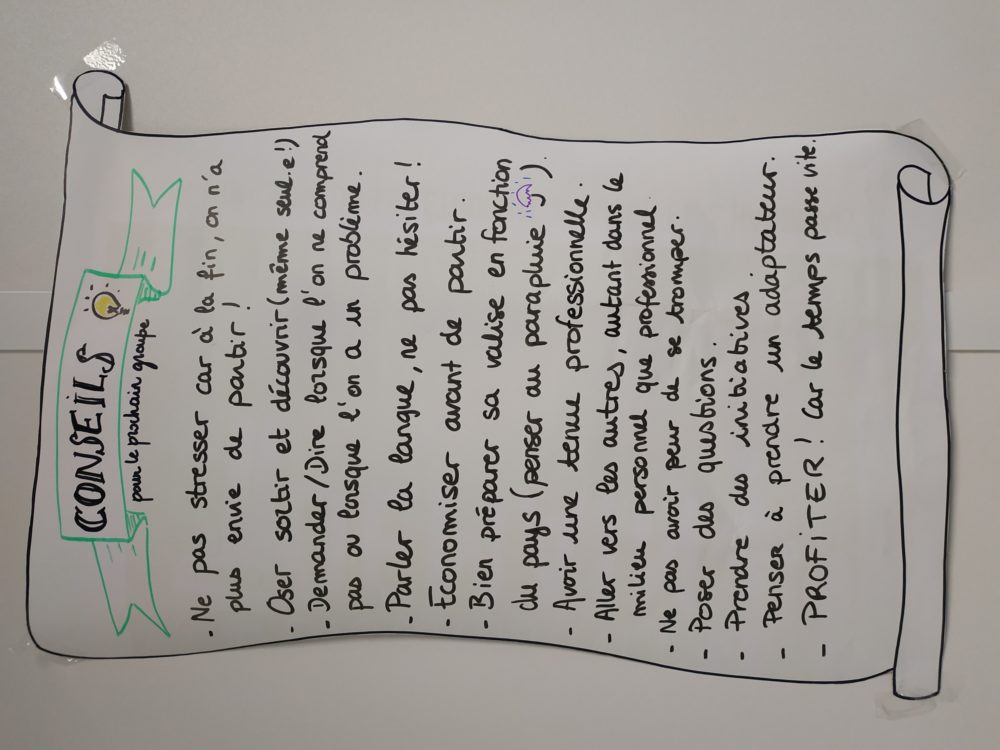 CONSEILS
pour le prochain groupe
- Ne pas stresser car à la fin, on n'a
plus envie de partir !
- Oser sortir et découvrir (même seul.e!)
- Demander/Dire lorsque l'on ne comprend
pas ou lorsque l'on a un problème.
- Parler la langue, ne pas hésiter !
- Economiser avant de partir.
- Bien préparer sa valise en fonction
du pays (penser au parapluie ).
- Avoir une tenue professionnelle.
- Aller vers les autres, autant dans le
milieu personnel que professionnel.
- Ne pas avoir peur de se tromper.
- Poser des questions.
- Prendre des initiatives.
- Penser à prendre un adaptateur.
- PROFITER ! Car le temps passe vite.